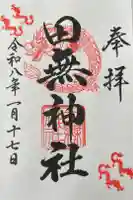 奉拝
田無神社
令和八年一月十七日